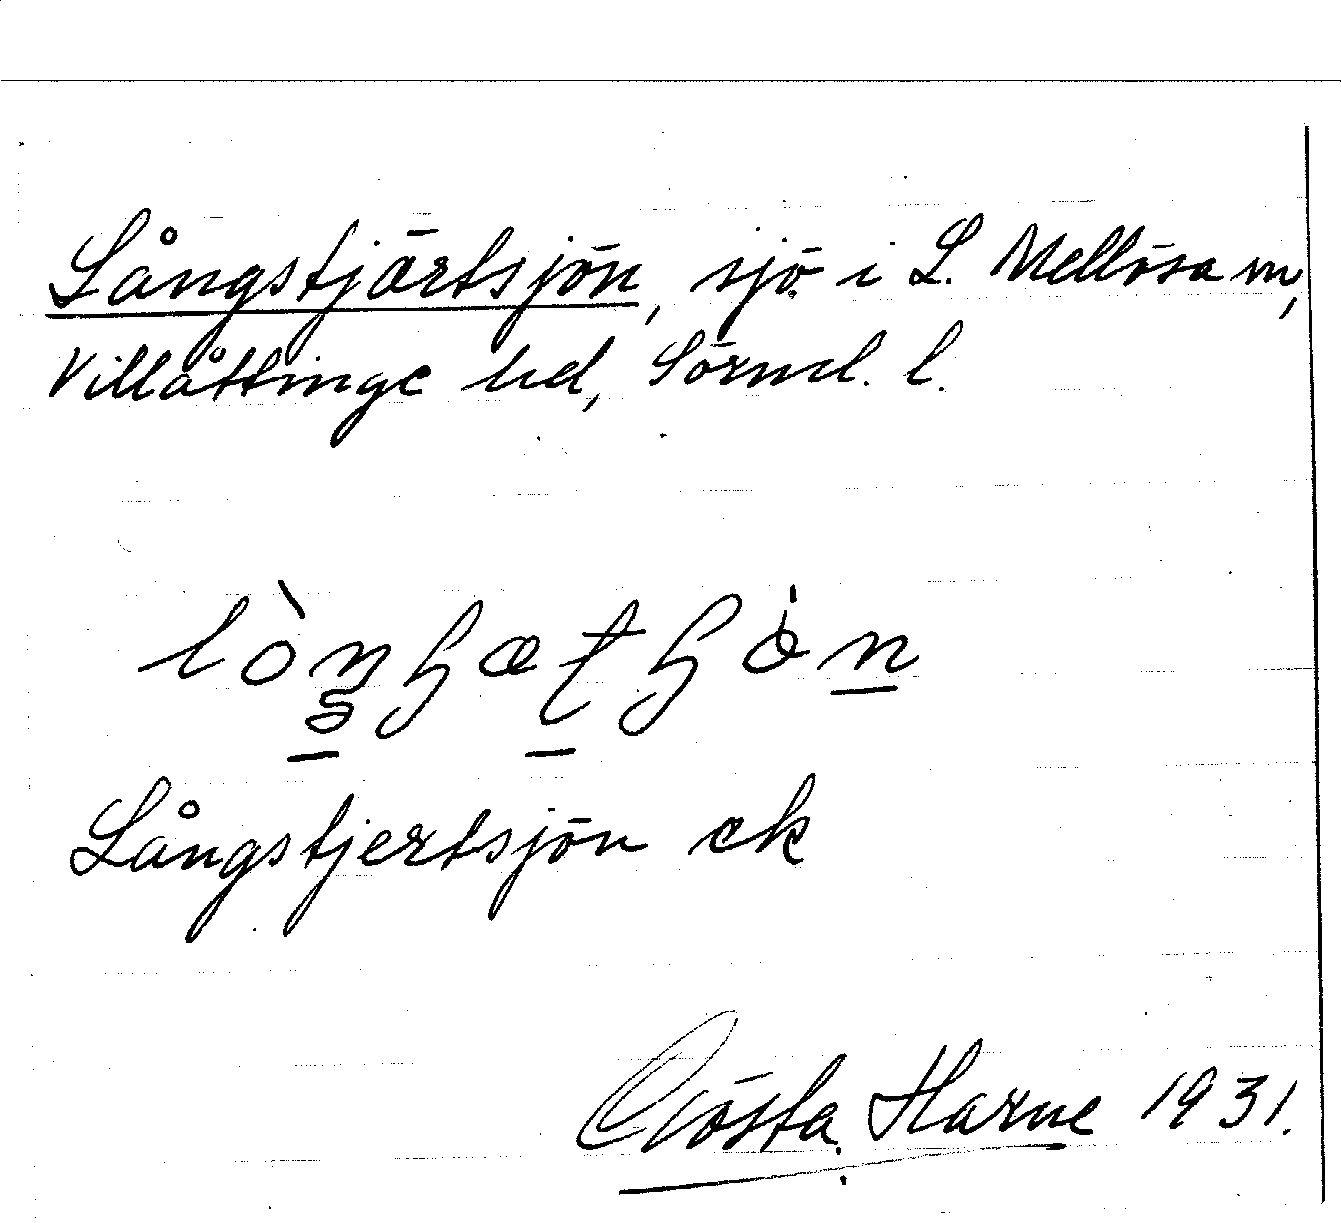 Långstjärtsjön, sjö i L. Mellösa sn,
Villåttinge hd, Sörml. l.
Långstjertsjön ek
Gösta Harne 1931.